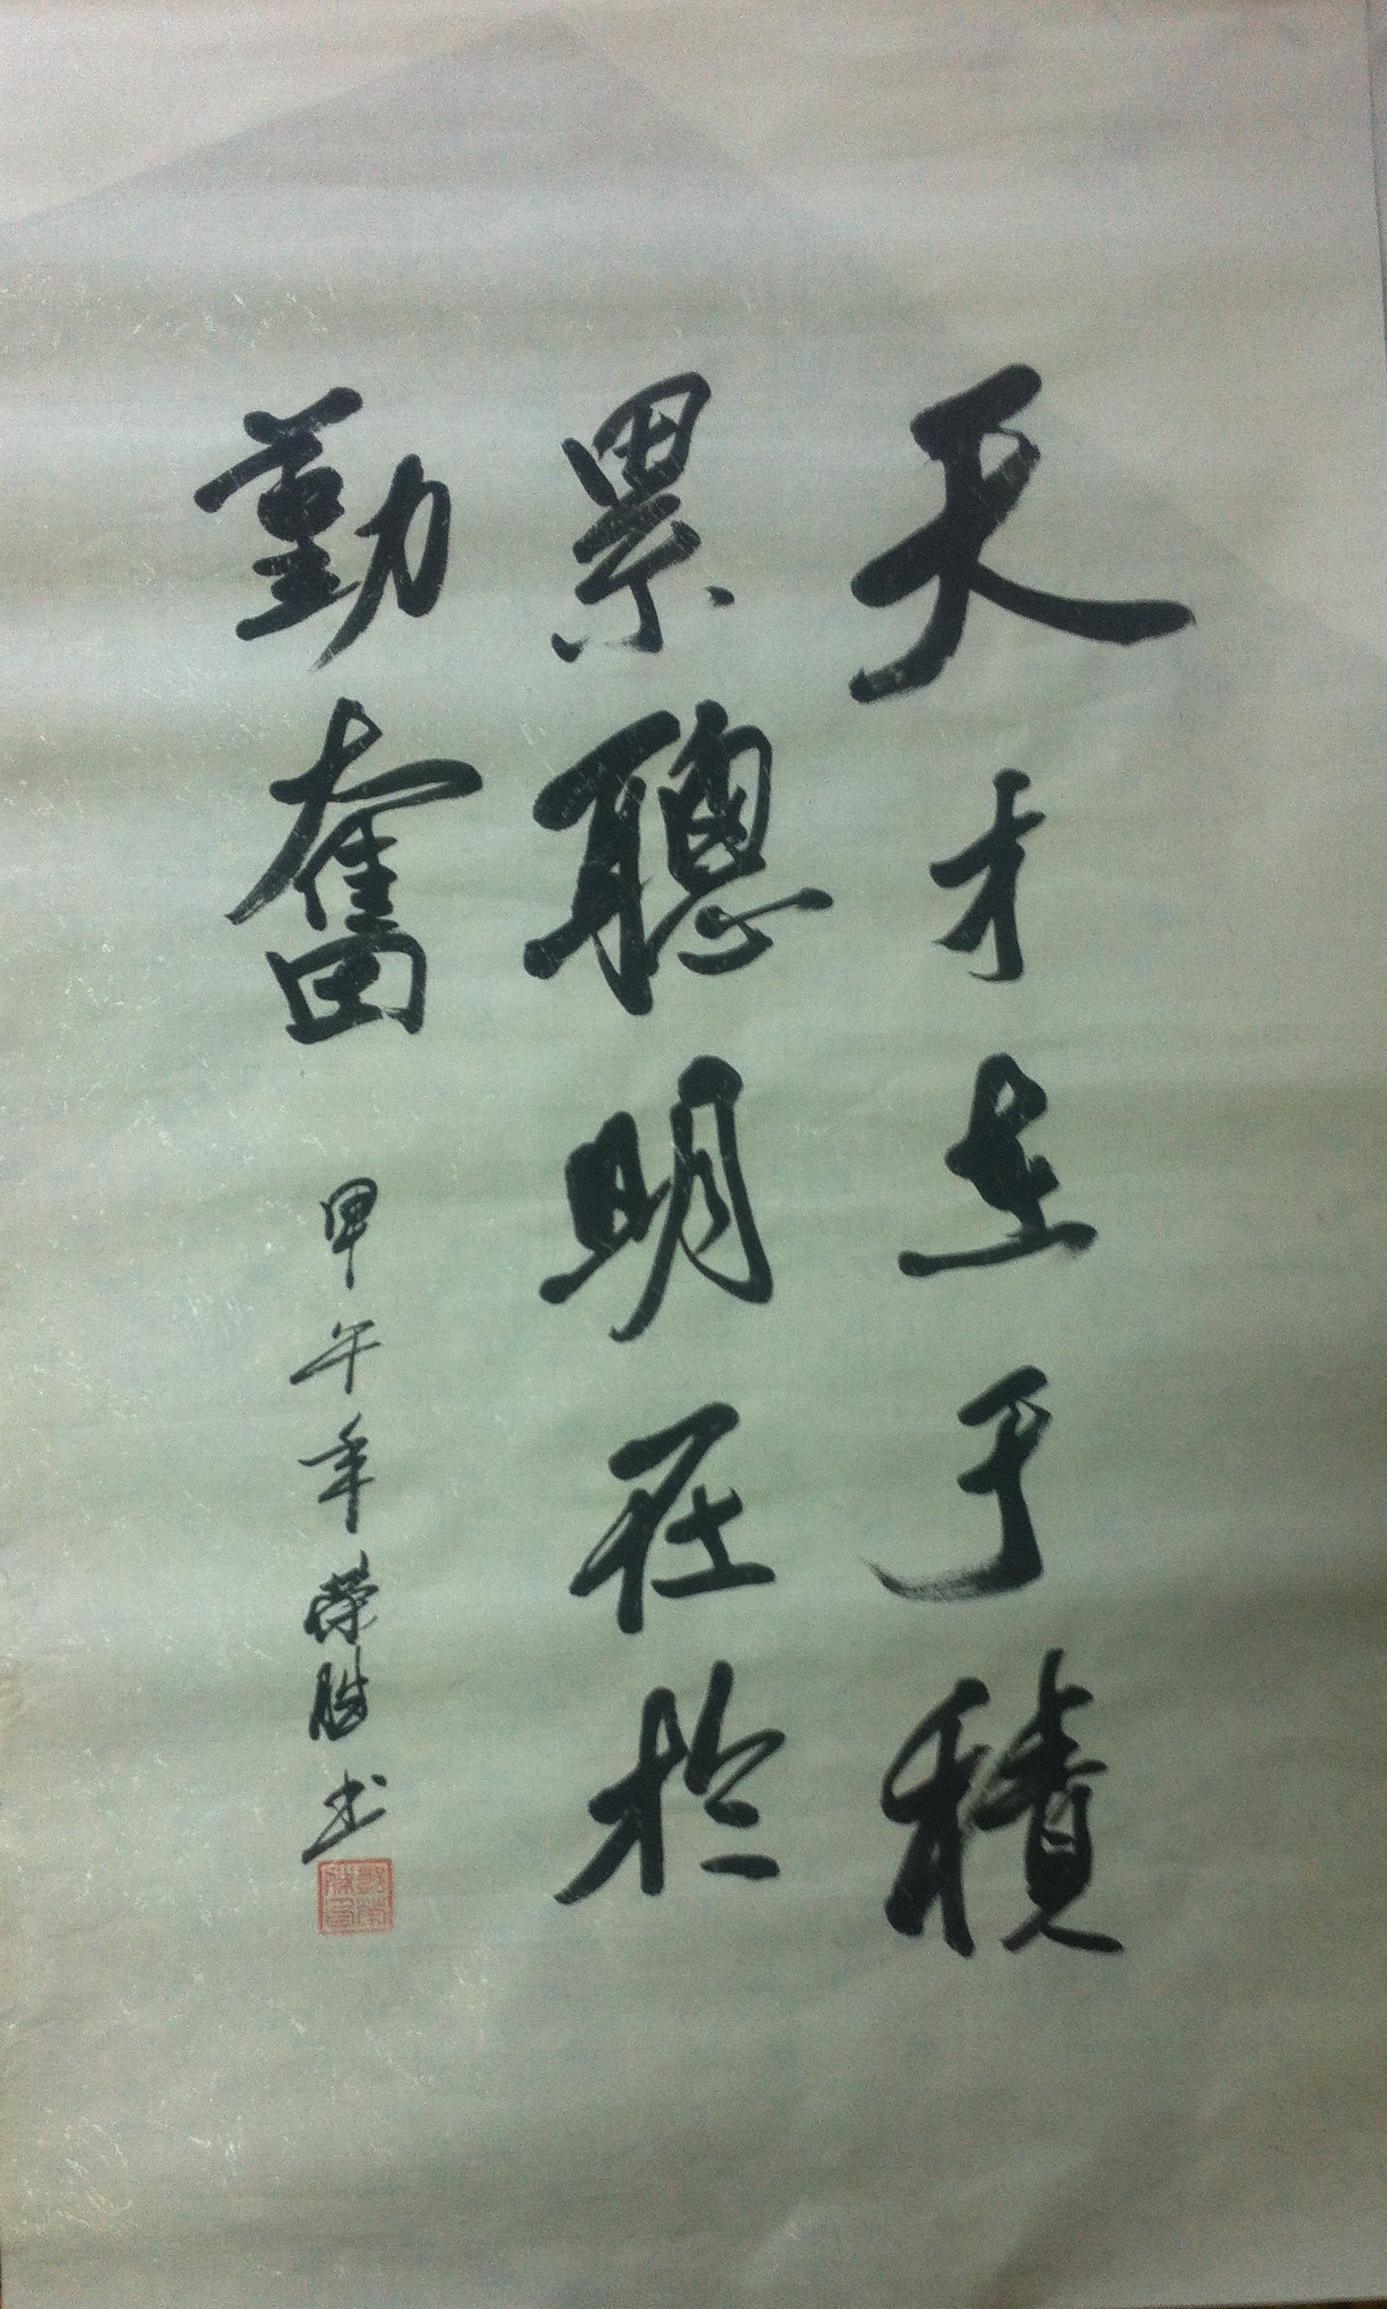 天才在于積
累聰明在於
勤奮
甲午年榮勝书